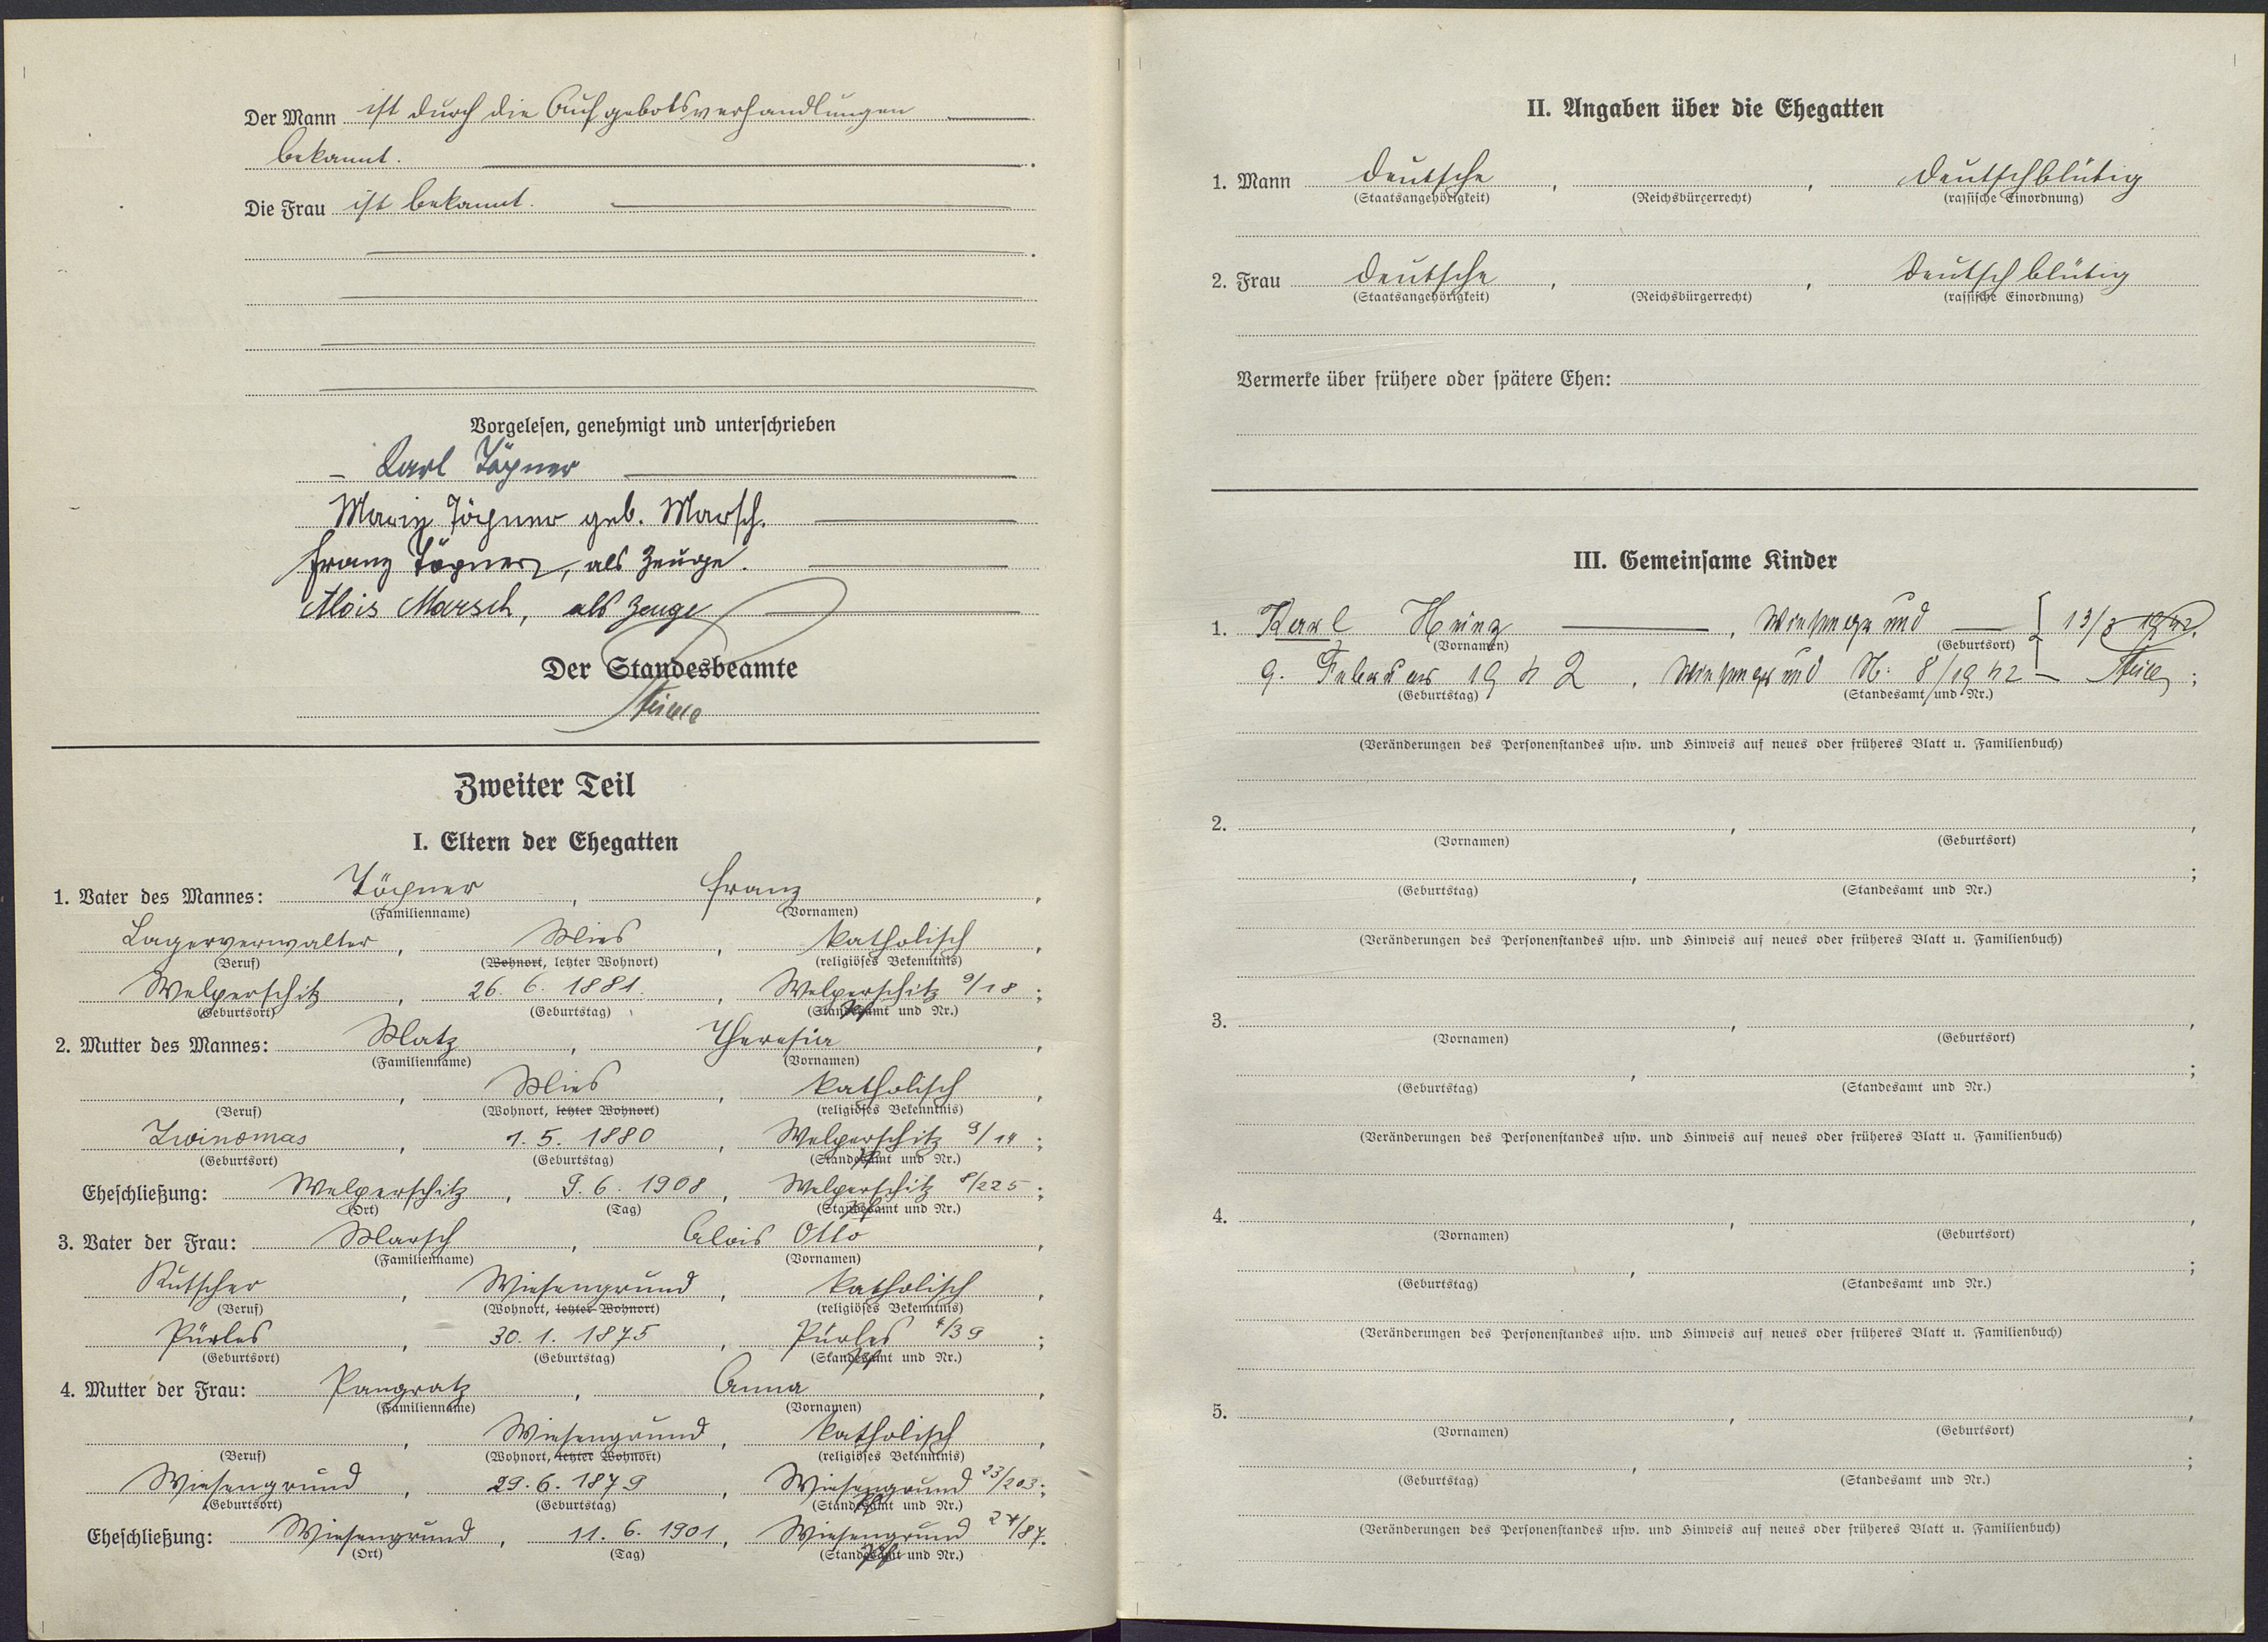 Der Mann ist durch die Aufgebotsverhandlungen
bekannt.
Die Frau ist bekannt.
Vorgelesen, genehmigt und unterschrieben
Karl Töpner
Marie Töpner geb. Marsch.
Franz Töpner, als Zeuge.
Alois Marsch, als Zeuge
Der Standesbeamte
Zweiter Teil
I. Eltern der Ehegatten
1. Vater des Mannes: Töpner, Franz,
(Familienname) (Vornamen)
Lagerverwalter, Mies, katholisch,
(Beruf) (Wohnort, letzter Wohnort) (religiöses Bekenntnis)
Welperschitz, 26. 6. 1881., Welperschitz 9/18;
(Geburtsort) (Geburtstag) (Standesamt und Nr.)
2. Mutter des Mannes: Matz, Theresia,
(Familienname) (Vornamen)
, Mies, katholisch,
(Beruf) (Wohnort, letzter Wohnort) (religiöses Bekenntnis)
Zwinomas, 1. 5. 1880, Welperschitz 9/14;
(Geburtsort) (Geburtstag) (Standesamt und Nr.)
Eheschließung: Welperschitz, 9. 6. 1908, Welperschitz 8/225;
(Ort) (Tag) (Standesamt und Nr.)
3. Vater der Frau: Marsch, Alois Otto,
(Familienname) (Vornamen)
Kutscher, Wiesengrund, katholisch,
(Beruf) (Wohnort, letzter Wohnort) (religiöses Bekenntnis)
Pürles, 30. 1. 1875, Pürles /39;
(Geburtsort) (Geburtstag) (Standesamt und Nr.)
4. Mutter der Frau: Pangratz, Anna,
(Familienname) (Vornamen)
, Wiesengrund, katholisch,
(Beruf) (Wohnort, letzter Wohnort) (religiöses Bekenntnis)
Wiesengrund, 29. 6. 1879, Wiesengrund 23/203;
(Geburtsort) (Geburtstag) (Standesamt und Nr.)
Eheschließung: Wiesengrund, 11. 6. 1901, Wiesengrund /87.
(Ort) (Tag) (Standesamt und Nr.)
II. Angaben über die Ehegatten
1. Mann deutsche, , deutschblütig
(Staatsangehörigkeit) (Reichsbürgerrecht) (rassische Einordnung)
2. Frau deutsche, , deutschblütig
(Staatsangehörigkeit) (Reichsbürgerrecht) (rassische Einordnung)
Vermerke über frühere oder spätere Ehen:
III. Gemeinsame Kinder
1. Karl Heinz, Wiesengrund 13/3 1942.
(Vornamen) (Geburtsort)
9. Februar 1942, Wiesengrund Nr. 8/1942;
(Geburtstag) (Standesamt und Nr.)
(Veränderungen des Personenstandes usw. und Hinweis auf neues oder früheres Blatt u. Familienbuch)
2. , ,
(Vornamen) (Geburtsort)
, ;
(Geburtstag) (Standesamt und Nr.)
(Veränderungen des Personenstandes usw. und Hinweis auf neues oder früheres Blatt u. Familienbuch)
3. , ,
(Vornamen) (Geburtsort)
, ;
(Geburtstag) (Standesamt und Nr.)
(Veränderungen des Personenstandes usw. und Hinweis auf neues oder früheres Blatt u. Familienbuch)
4. , ,
(Vornamen) (Geburtsort)
, ;
(Geburtstag) (Standesamt und Nr.)
(Veränderungen des Personenstandes usw. und Hinweis auf neues oder früheres Blatt u. Familienbuch)
5. , ,
(Vornamen) (Geburtsort)
, ;
(Geburtstag) (Standesamt und Nr.)
(Veränderungen des Personenstandes usw. und Hinweis auf neues oder früheres Blatt u. Familienbuch)